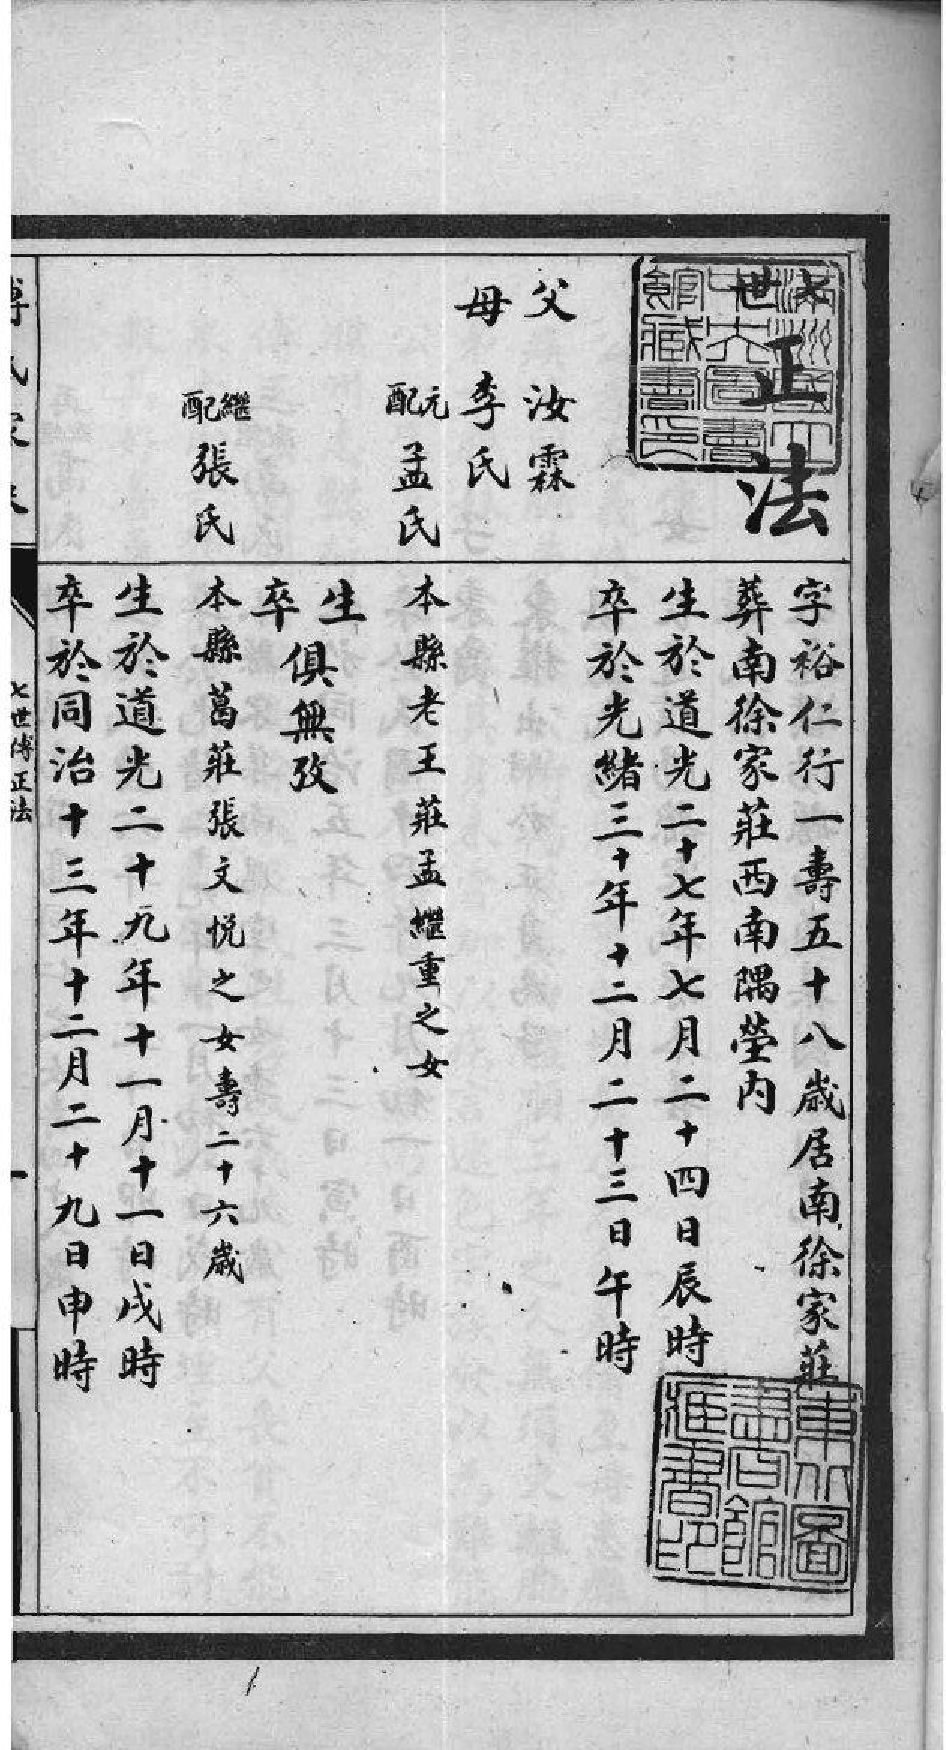 七世
正法
字裕仁行一壽五十八歲居南徐家莊
葬南徐家莊西南隅塋內
生於道光二十七年七月二十四日辰時
卒於光緒三十年十二月二十三日午時
父 汝霖
母 李氏
元配 孟氏
本縣老王莊孟繼重之女
生卒俱無攷
繼配 張氏
本縣葛莊張文悅之女壽二十六歲
生於道光二十九年十一月十一日戌時
卒於同治十三年十二月二十九日申時
傅氏家
七世傅正法
東北圖書館藏書印